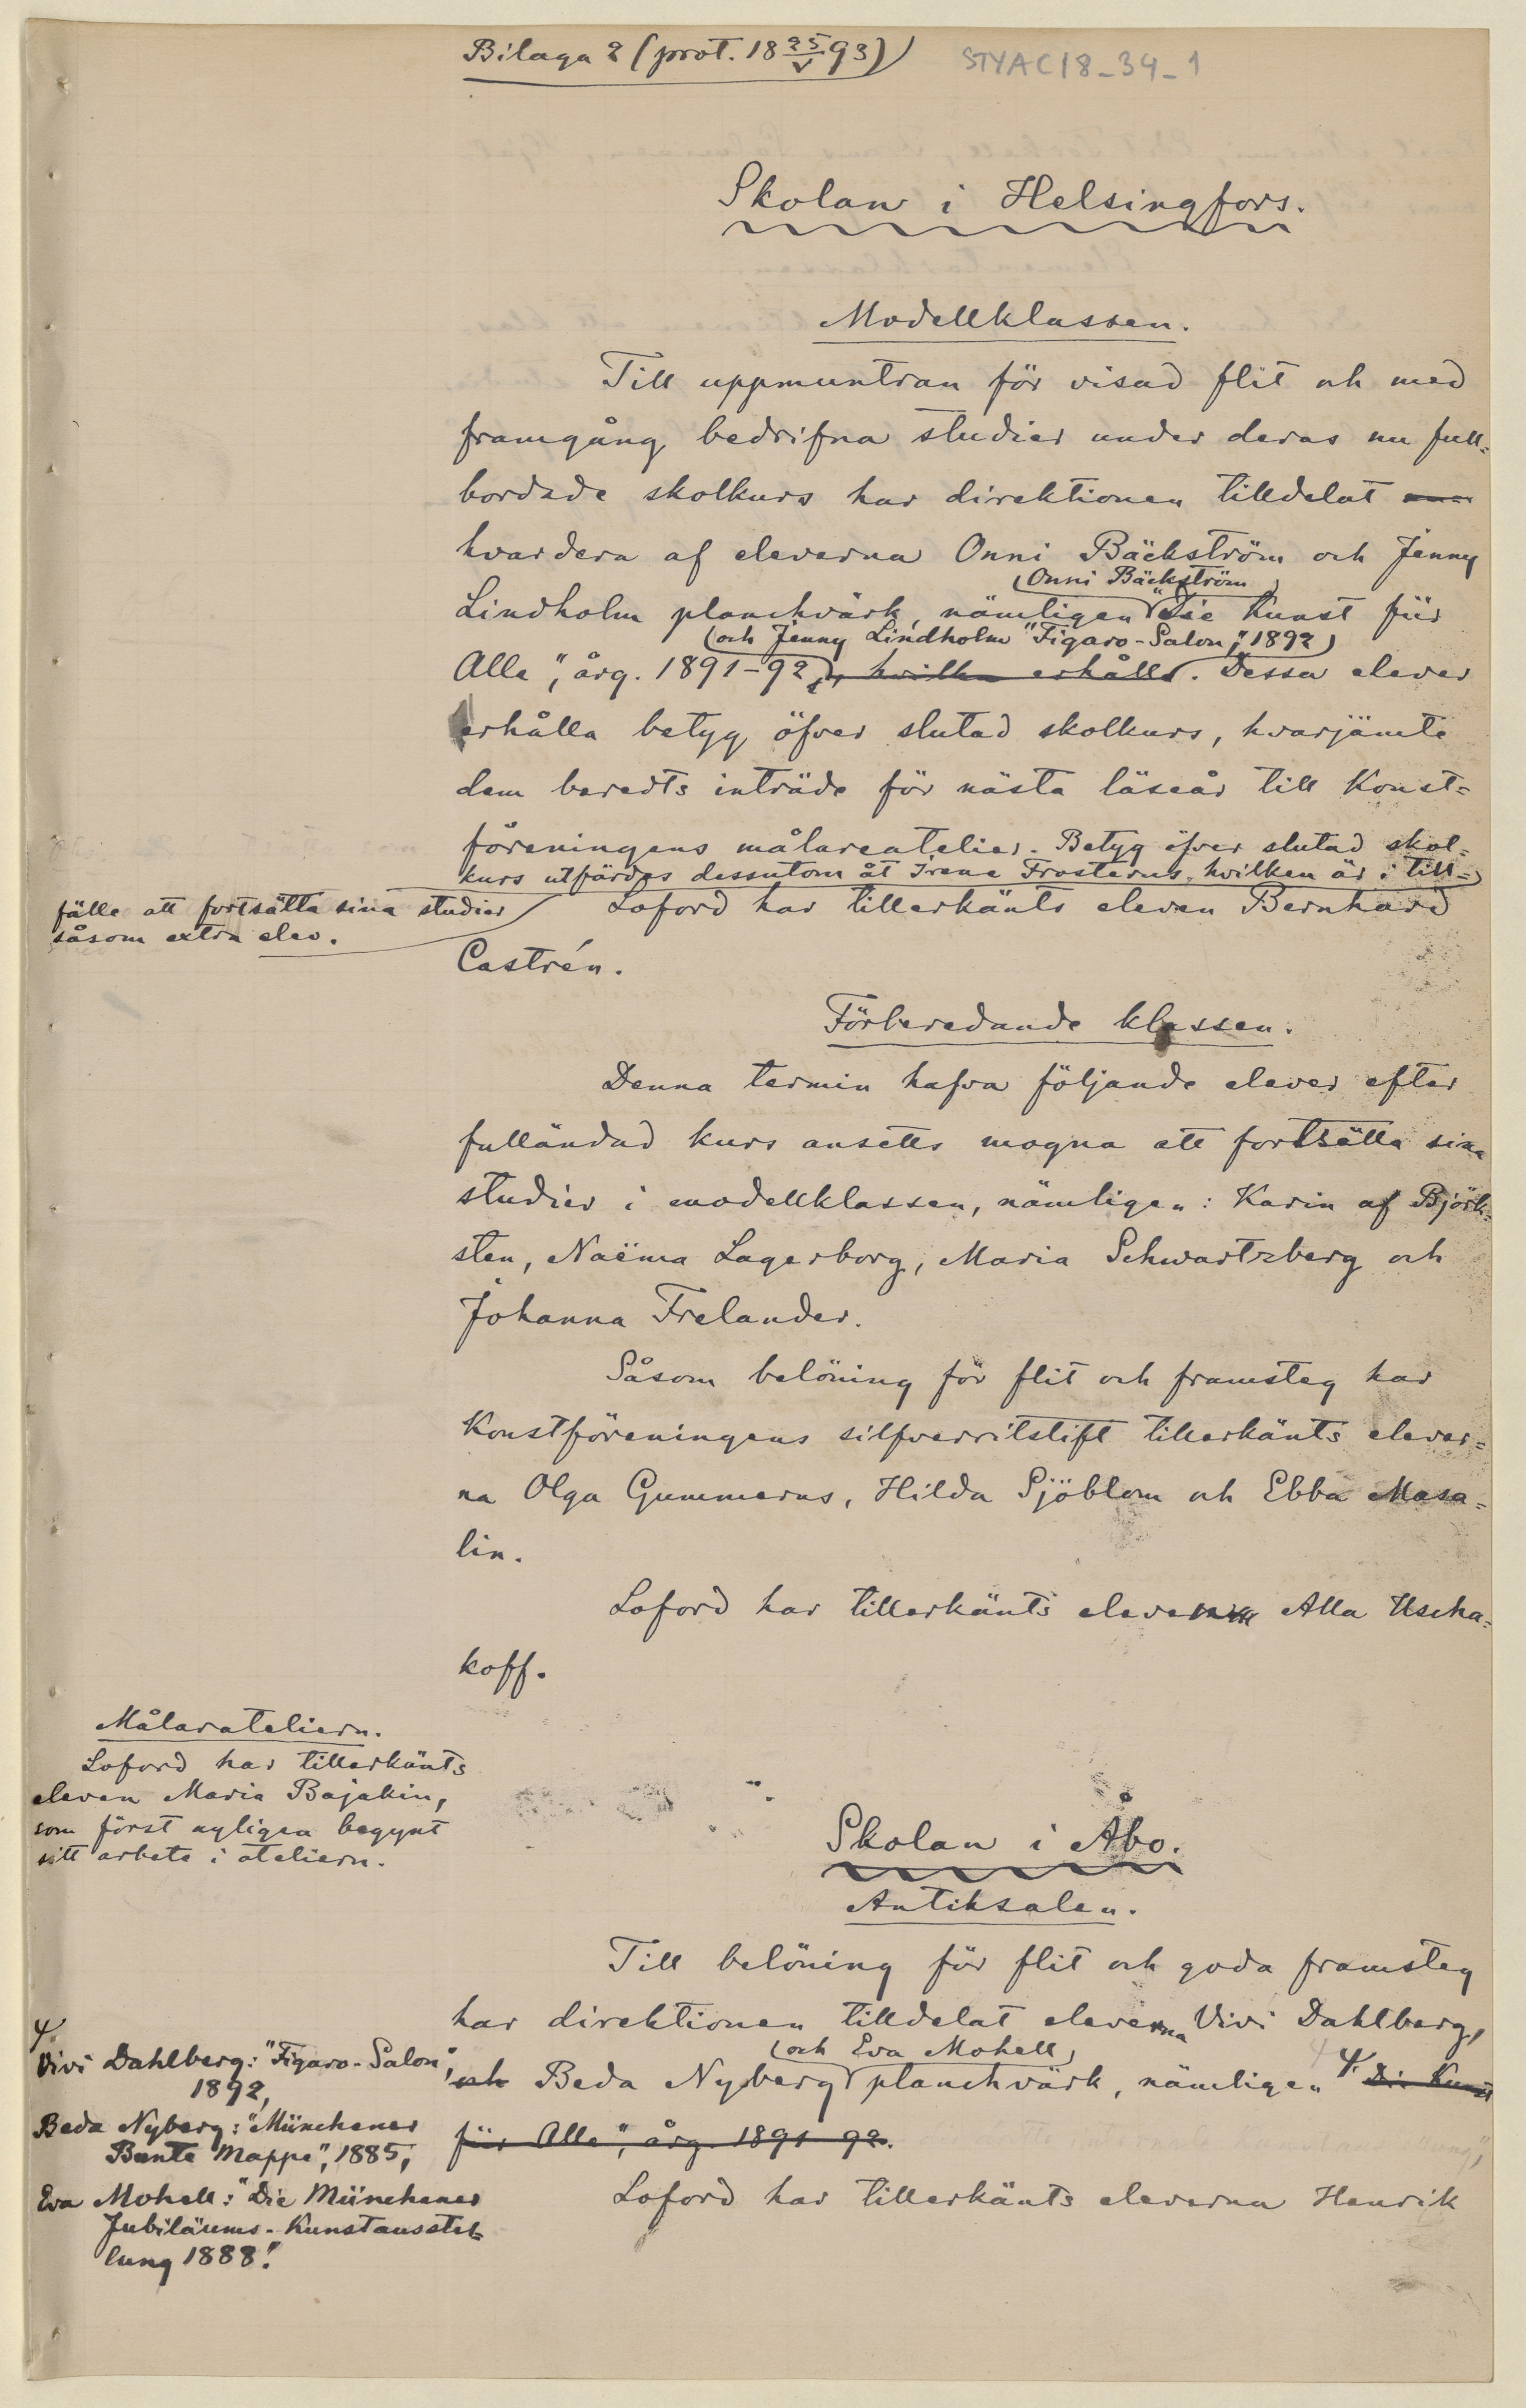 Bilaga 2 (prot. 18 25/V 93)
STYAC18_34_1
Skolan i Helsingfors.
Modellklassen.
Till uppmuntran för visad flit och med
framgång bedrifna studier under deras nu full=
bordade skolkurs har direktionen tilldelat
hvardera af eleverna Onni Bäckström och Jenny
Onni Bäckström
Lindholm planchvärk, nämligen "Die Kunst für
och Jenny Lindholm "Figaro-Salon", 1892
Alle", årg. 1891-92, hvilka erhålla. Dessa elever
erhålla betyg öfver slutad skolkurs, hvarjämte
dem beredts inträde för nästa läseår till Konst=
föreningens målareatelier. Betyg öfver slutad skol=
kurs utfärdas dessutom åt Irene Frosterus, hvilken är i till=
fälle att fortsätta sina studier
såsom extra elev.
Loford har tillerkänts eleven Bernhard
Castrén.
Förberedande klassen.
Denna termin hafva följande elever efter
fulländad kurs ansetts mogna att fortsätta sina
studier i modellklassen, nämligen: Karin af Björk=
sten, Naëma Lagerborg, Maria Schwartzberg och
Johanna Frelander.
Såsom belöning för flit och framsteg har
Konstföreningens silfverritstift tillerkänts elever=
na Olga Gummerus, Hilda Sjöblom och Ebba Masa=
lin.
Loford har tillerkänts eleven Alla Uscha=
koff.
Målarateliern.
Loford har tillerkänts
eleven Maria Bajakin,
som först nyligen begynt
sitt arbete i ateliern.
Skolan i Åbo.
Antiksalen.
Till belöning för flit och goda framsteg
har direktionen tilldelat eleverna Vivi Dahlberg,
och Eva Mohell
och Beda Nyberg planchvärk, nämligen "Die Kunst
für Alle", årg. 1891-92.
Vivi Dahlberg: "Figaro-Salon",
1892,
Beda Nyberg: "Münchener
Bunte Mappe", 1885,
Eva Mohell: "Die Münchener
Jubiläums-Kunstausstel-
lung 1888".
Loford har tillerkänts eleverna Henrik